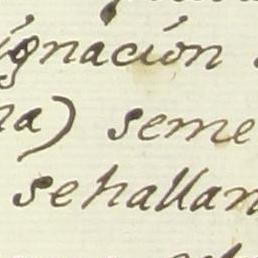 ignación
na) seme
sehallan